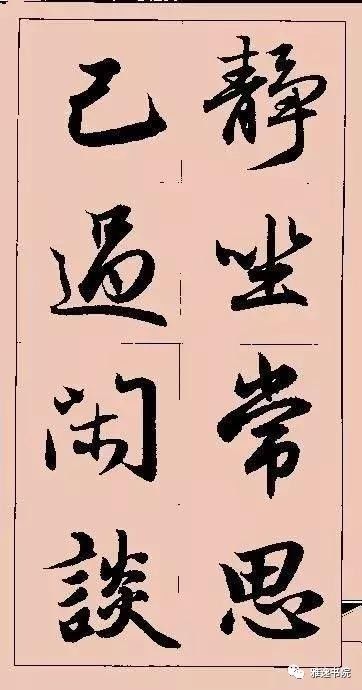 静坐常思
己過闲談
雅逺书院